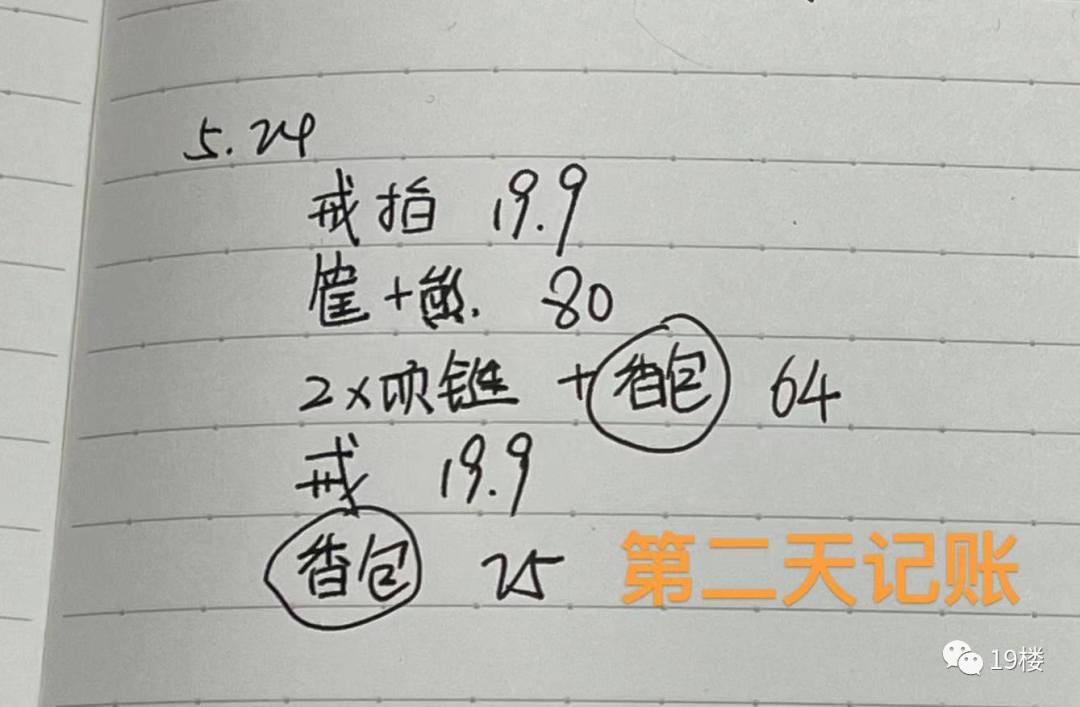 5.24
戒指 19.9
筐+熊. 80
2×项链 +香包 64
戒 19.9
香包 25
第二天记账
19楼